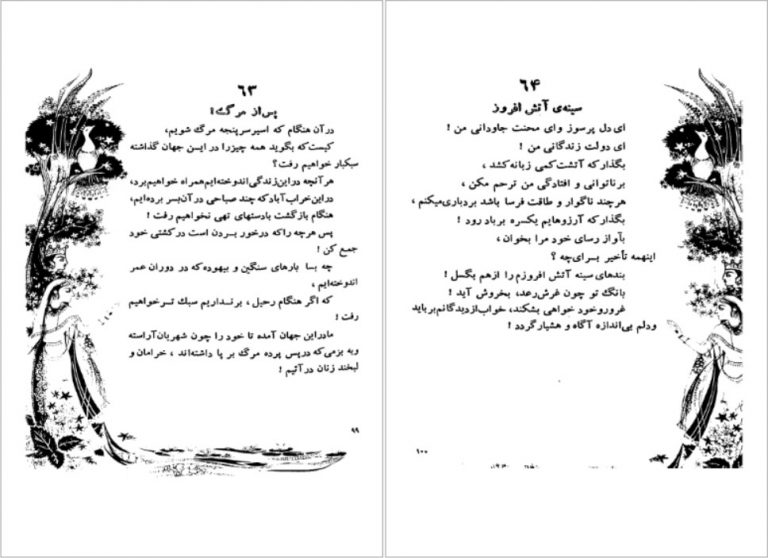 ۶۳
پس از مرگ؟
در آن هنگام که اسیر سرپنجه مرگ شویم،
کیست که بگوید همه چیز را در ایـن جهان گذاشته
سبکبار خواهیم رفت؟
هر آنچه در این زندگی اندوخته‌ایم همراه خواهیم برد،
در این خراب آباد که چند صباحی در آن بسر برده‌ایم،
هنگام بازگشت با دستهای تهی نخواهیم رفت !
پس هر چه را که در خور بـردن است در کشتی خود
جمع کن !
چه بسا بارهای سنگین و بیهوده که در دوران عمر
اندوخته‌ایم ،
که اگر هنگام رحیل ، بر نداریم سبك تر خواهیم
رفت !
ما در این جهان آمده تا خود را چون شهربان آراسته
و به بزمی که در پس پرده مرگ بر پا داشته‌اند ، خرامان و
لبخند زنان در آئیم !
۹۹
۶۴
سینه‌ی آتش افروز
ای دل پرسوز و ای محنت جاودانی من !
ای دولت زندگانی من !
بگذار که آتشت کمی زبانه کشد ،
بر ناتوانی و افتادگی من ترحم مکن ،
هر چند ناگوار و طاقت فرسا باشد بردباری میکنم ،
بگذار که آرزوهایم یکسره بر باد رود !
با آواز رسای خود مرا بخوان ،
اینهمه تأخیر بـرای چه ؟
بندهای سینه آتش افروزم را از هم بگسل !
بانگ تو چون غرش رعد، بخروش آید !
غرور و خود خواهی بشکند، خواب از دیدگانم بر باید
و دلم بی‌اندازه آگاه و هشیار گردد !
۱۰۰